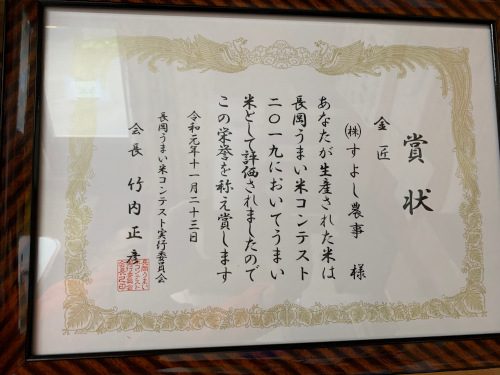 賞状
金匠
㈱すよし農事 様
あなたが生産された米は
長岡うまい米コンテスト
二〇一九においてうまい
米として評価されましたので
この栄誉を称え賞します
令和元年十一月二十三日
長岡うまい米コンテスト実行委員会
会長 竹内正彦
長岡うまい
米コンテスト
実行委員会
会長之印